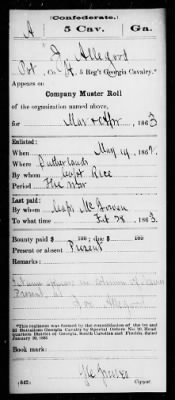 (Confederate.)
A 5 Cav. Ga.
J Allegood
Pvt, Co. A, 5 Reg't Georgia Cavalry.*
Appears on
Company Muster Roll
of the organization named above,
for Mar & Apr, 1863
Enlisted:
When May 14, 1862.
Where Sutherlands
By whom Capt Rice
Period The War
Last paid:
By whom Capt McGowen
To what time Feb 28, 1863.
Bounty paid $ 100; due $ 100
Present or absent Present
Remarks:
appears in column of
Present as
Allegood
*This regiment was formed by the consolidation of the 1st and 2d Battalions Georgia Cavalry by Special Orders No. 20, Headquarters District of Georgia, South Carolina and Florida, dated January 20, 1863.
Book mark:
(642) Copyist